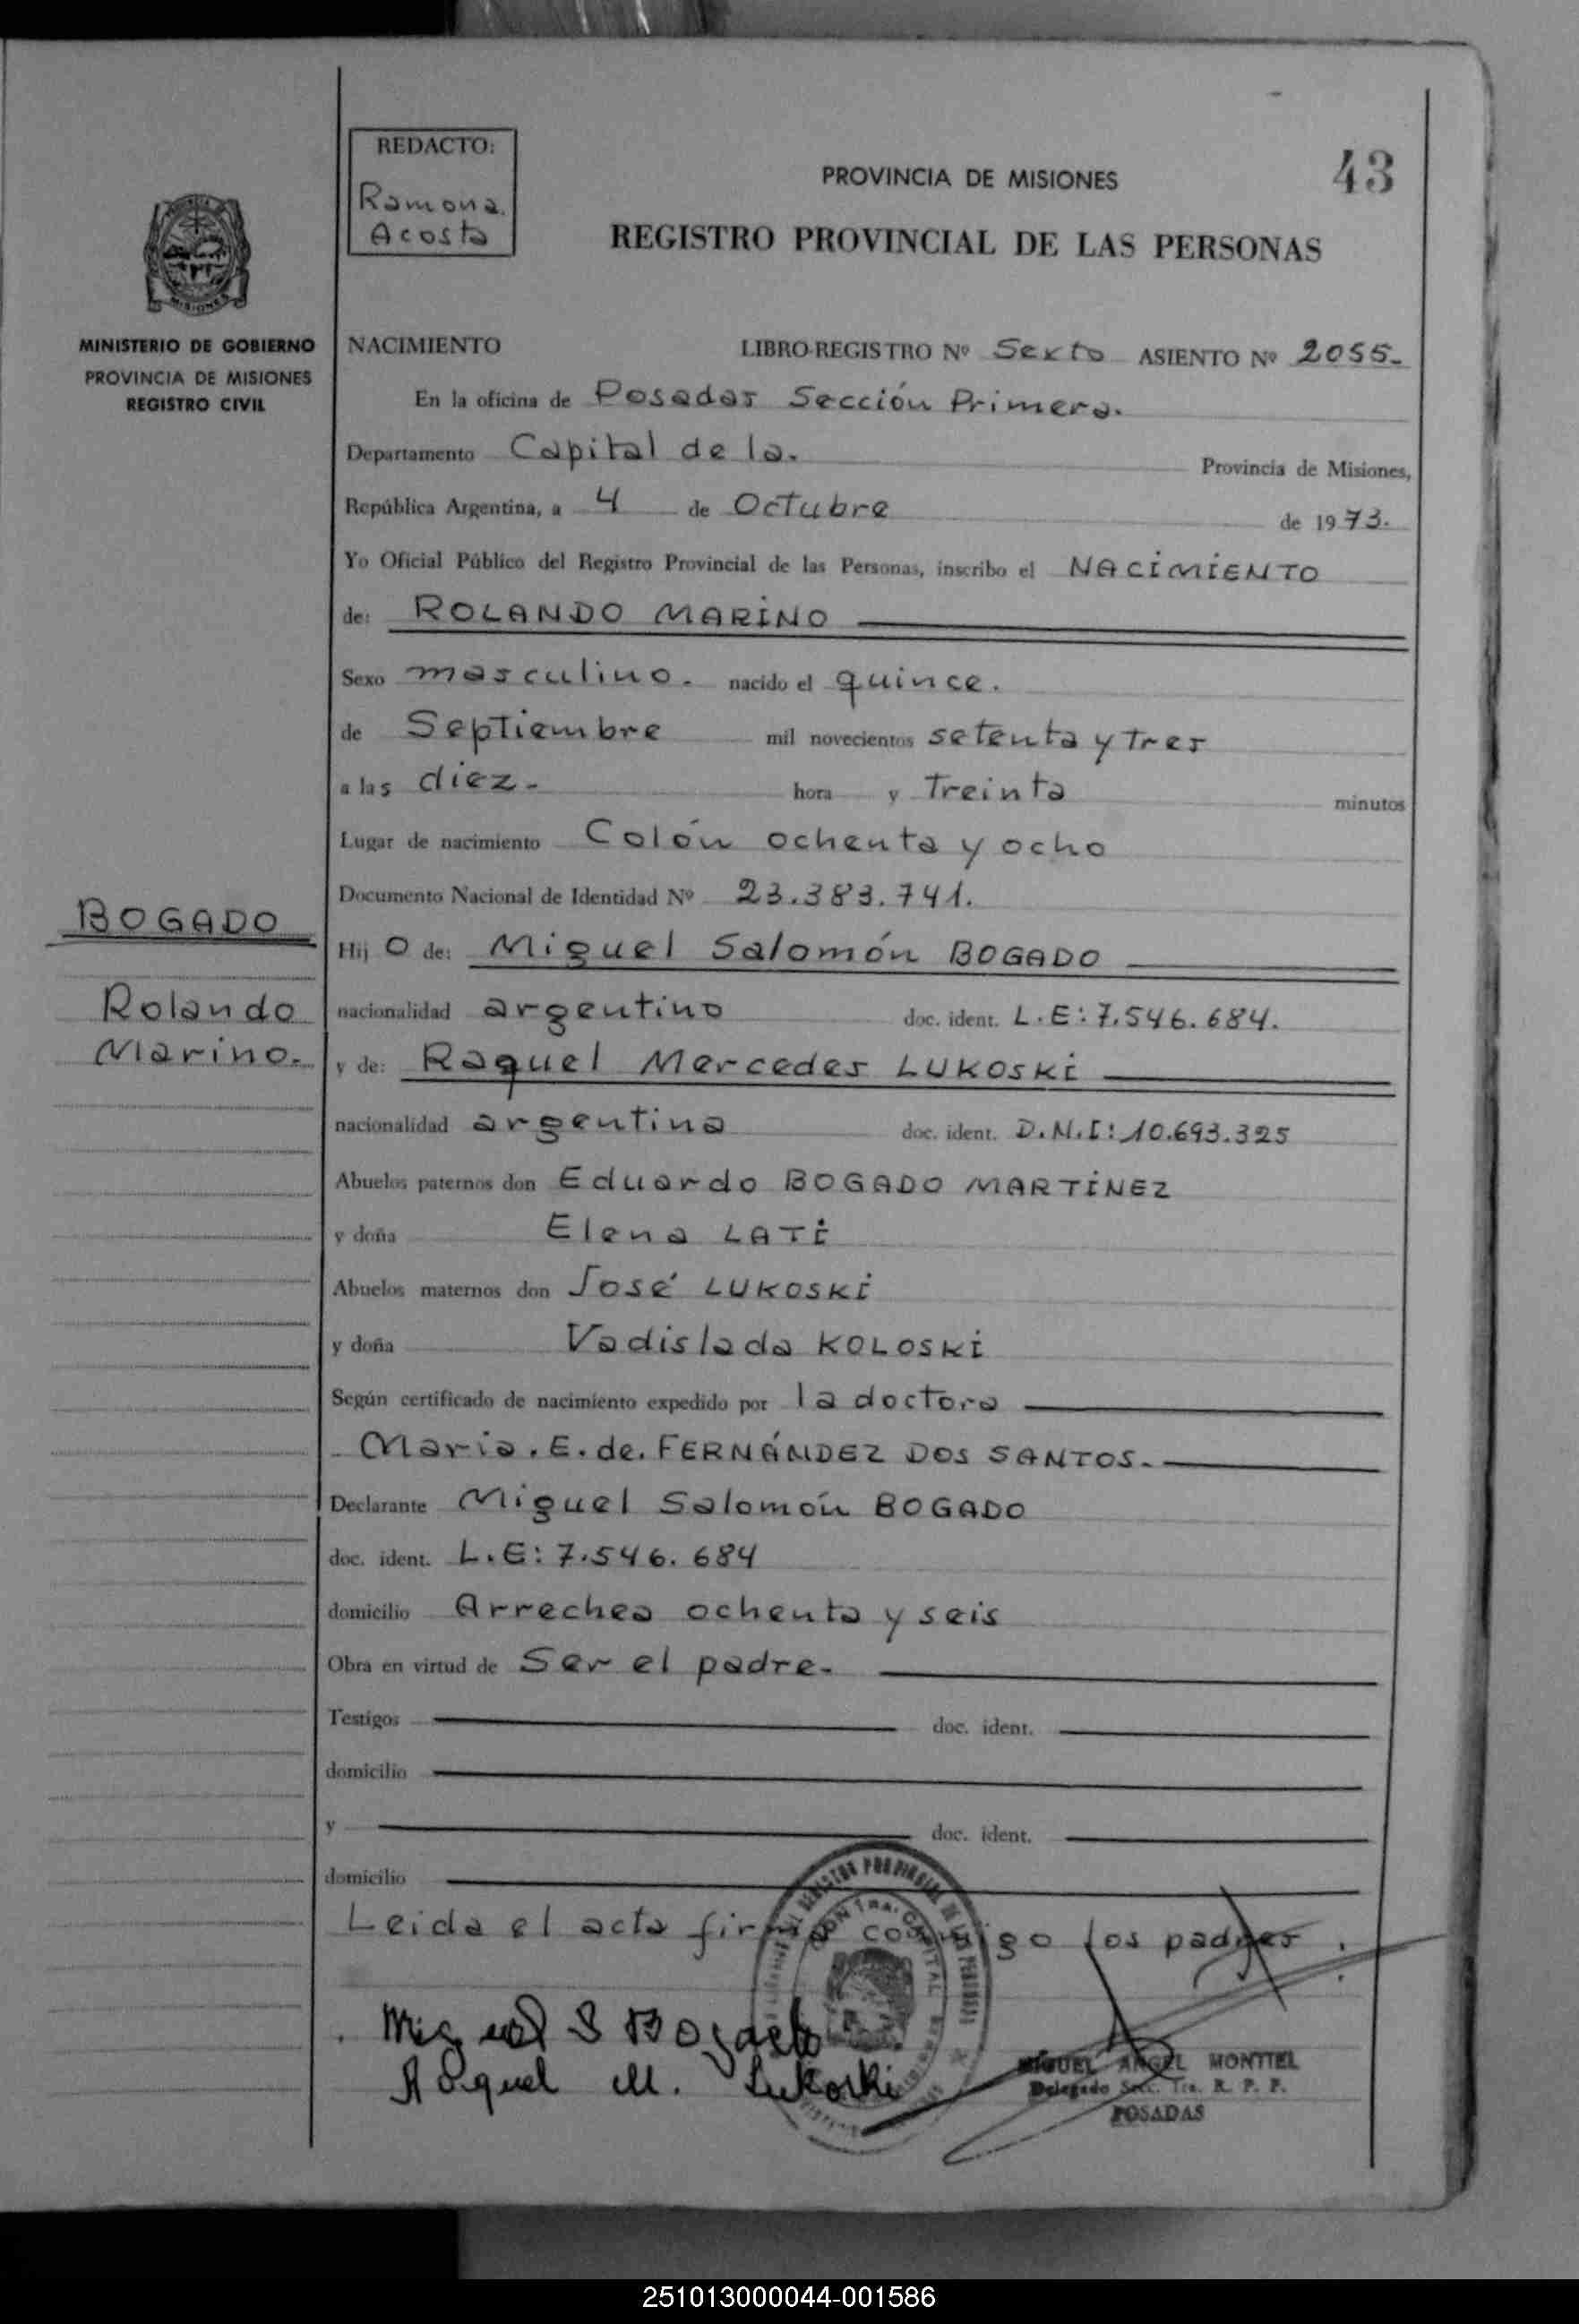 REDACTO:
Ramona.
Acosta
PROVINCIA DE MISIONES
43
REGISTRO PROVINCIAL DE LAS PERSONAS
MISIONES
MINISTERIO DE GOBIERNO
PROVINCIA DE MISIONES
REGISTRO CIVIL
NACIMIENTO LIBRO-REGISTRO Nº Sexto ASIENTO Nº 2055.
En la oficina de Posadas Sección Primera.
Departamento Capital de la. Provincia de Misiones,
República Argentina, a 4 de Octubre de 1973.
Yo Oficial Público del Registro Provincial de las Personas, inscribo el NACIMIENTO
de: ROLANDO MARINO
Sexo masculino. nacido el quince.
de Septiembre mil novecientos setenta y tres
a las diez. hora y Treinta minutos
Lugar de nacimiento Colón ochenta y ocho
Documento Nacional de Identidad Nº 23.383.741.
BOGADO
Rolando
Marino.
Hij O de: Miguel Salomón BOGADO
nacionalidad argentino doc. ident. L.E: 7.546.684.
y de: Raquel Mercedes LUKOSKI
nacionalidad argentina doc. ident. D.N.I: 10.693.325
Abuelos paternos don Eduardo BOGADO MARTÍNEZ
y doña Elena LATI
Abuelos maternos don José LUKOSKI
y doña Vadislada KOLOSKI
Según certificado de nacimiento expedido por la doctora
Maria. E. de. FERNÁNDEZ DOS SANTOS.
Declarante Miguel Salomón BOGADO
doc. ident. L.E: 7.546.684
domicilio Arrechea ochenta y seis
Obra en virtud de Ser el padre.
Testigos doc. ident.
domicilio
y doc. ident.
domicilio
Leida el acta firman conmigo los padres.
Miguel S Bogado
Raquel M. Lukoski
MIGUEL ANGEL MONTIEL
Delegado Secc. 1ra. R. P. P.
POSADAS
251013000044-001586